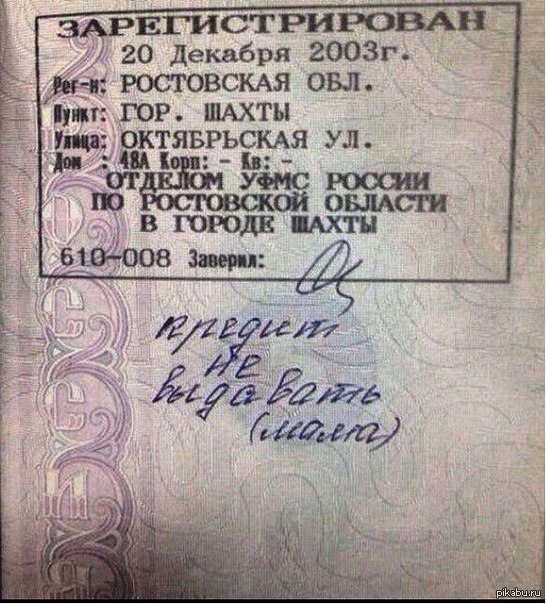 ЗАРЕГИСТРИРОВАН
20 Декабря 2003г.
Рег-н: РОСТОВСКАЯ ОБЛ.
Пункт: ГОР. ШАХТЫ
Улица: ОКТЯБРЬСКАЯ УЛ.
Дом : 48А Корп: - Кв: -
ОТДЕЛОМ УФМС РОССИИ
ПО РОСТОВСКОЙ ОБЛАСТИ
В ГОРОДЕ ШАХТЫ
610-008 Заверил:
кредит
не
выдавать
(мама)
pikabu.ru